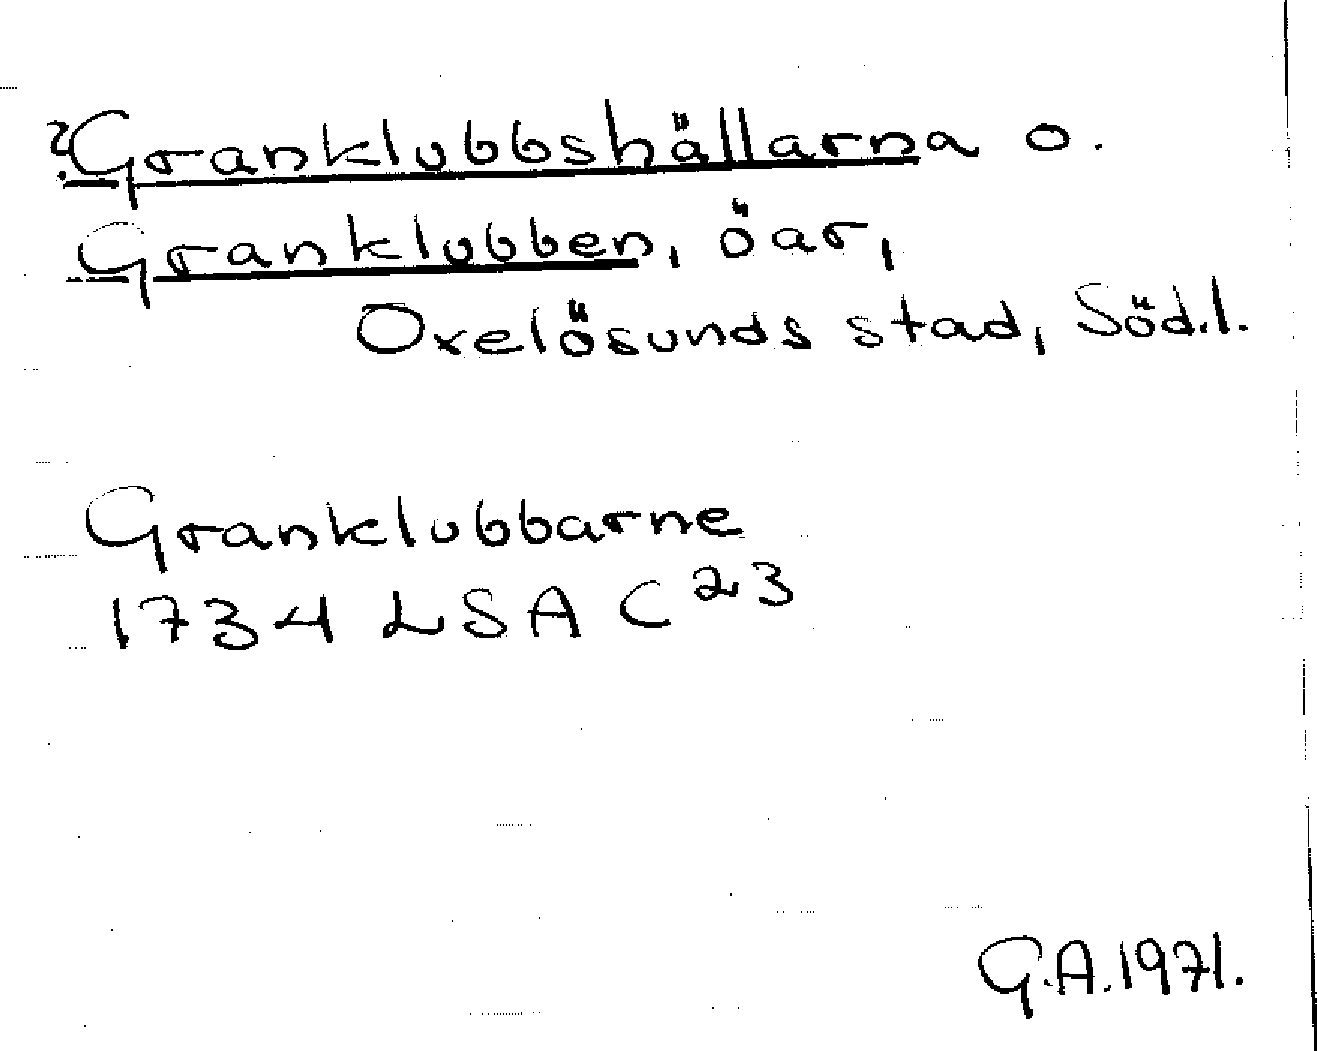 ?Granklubbshällarna o.
Granklubben, öar,
Oxelösunds stad, Söd.l.
Granklubbarne
1734 LSA C23
G.A.1971.